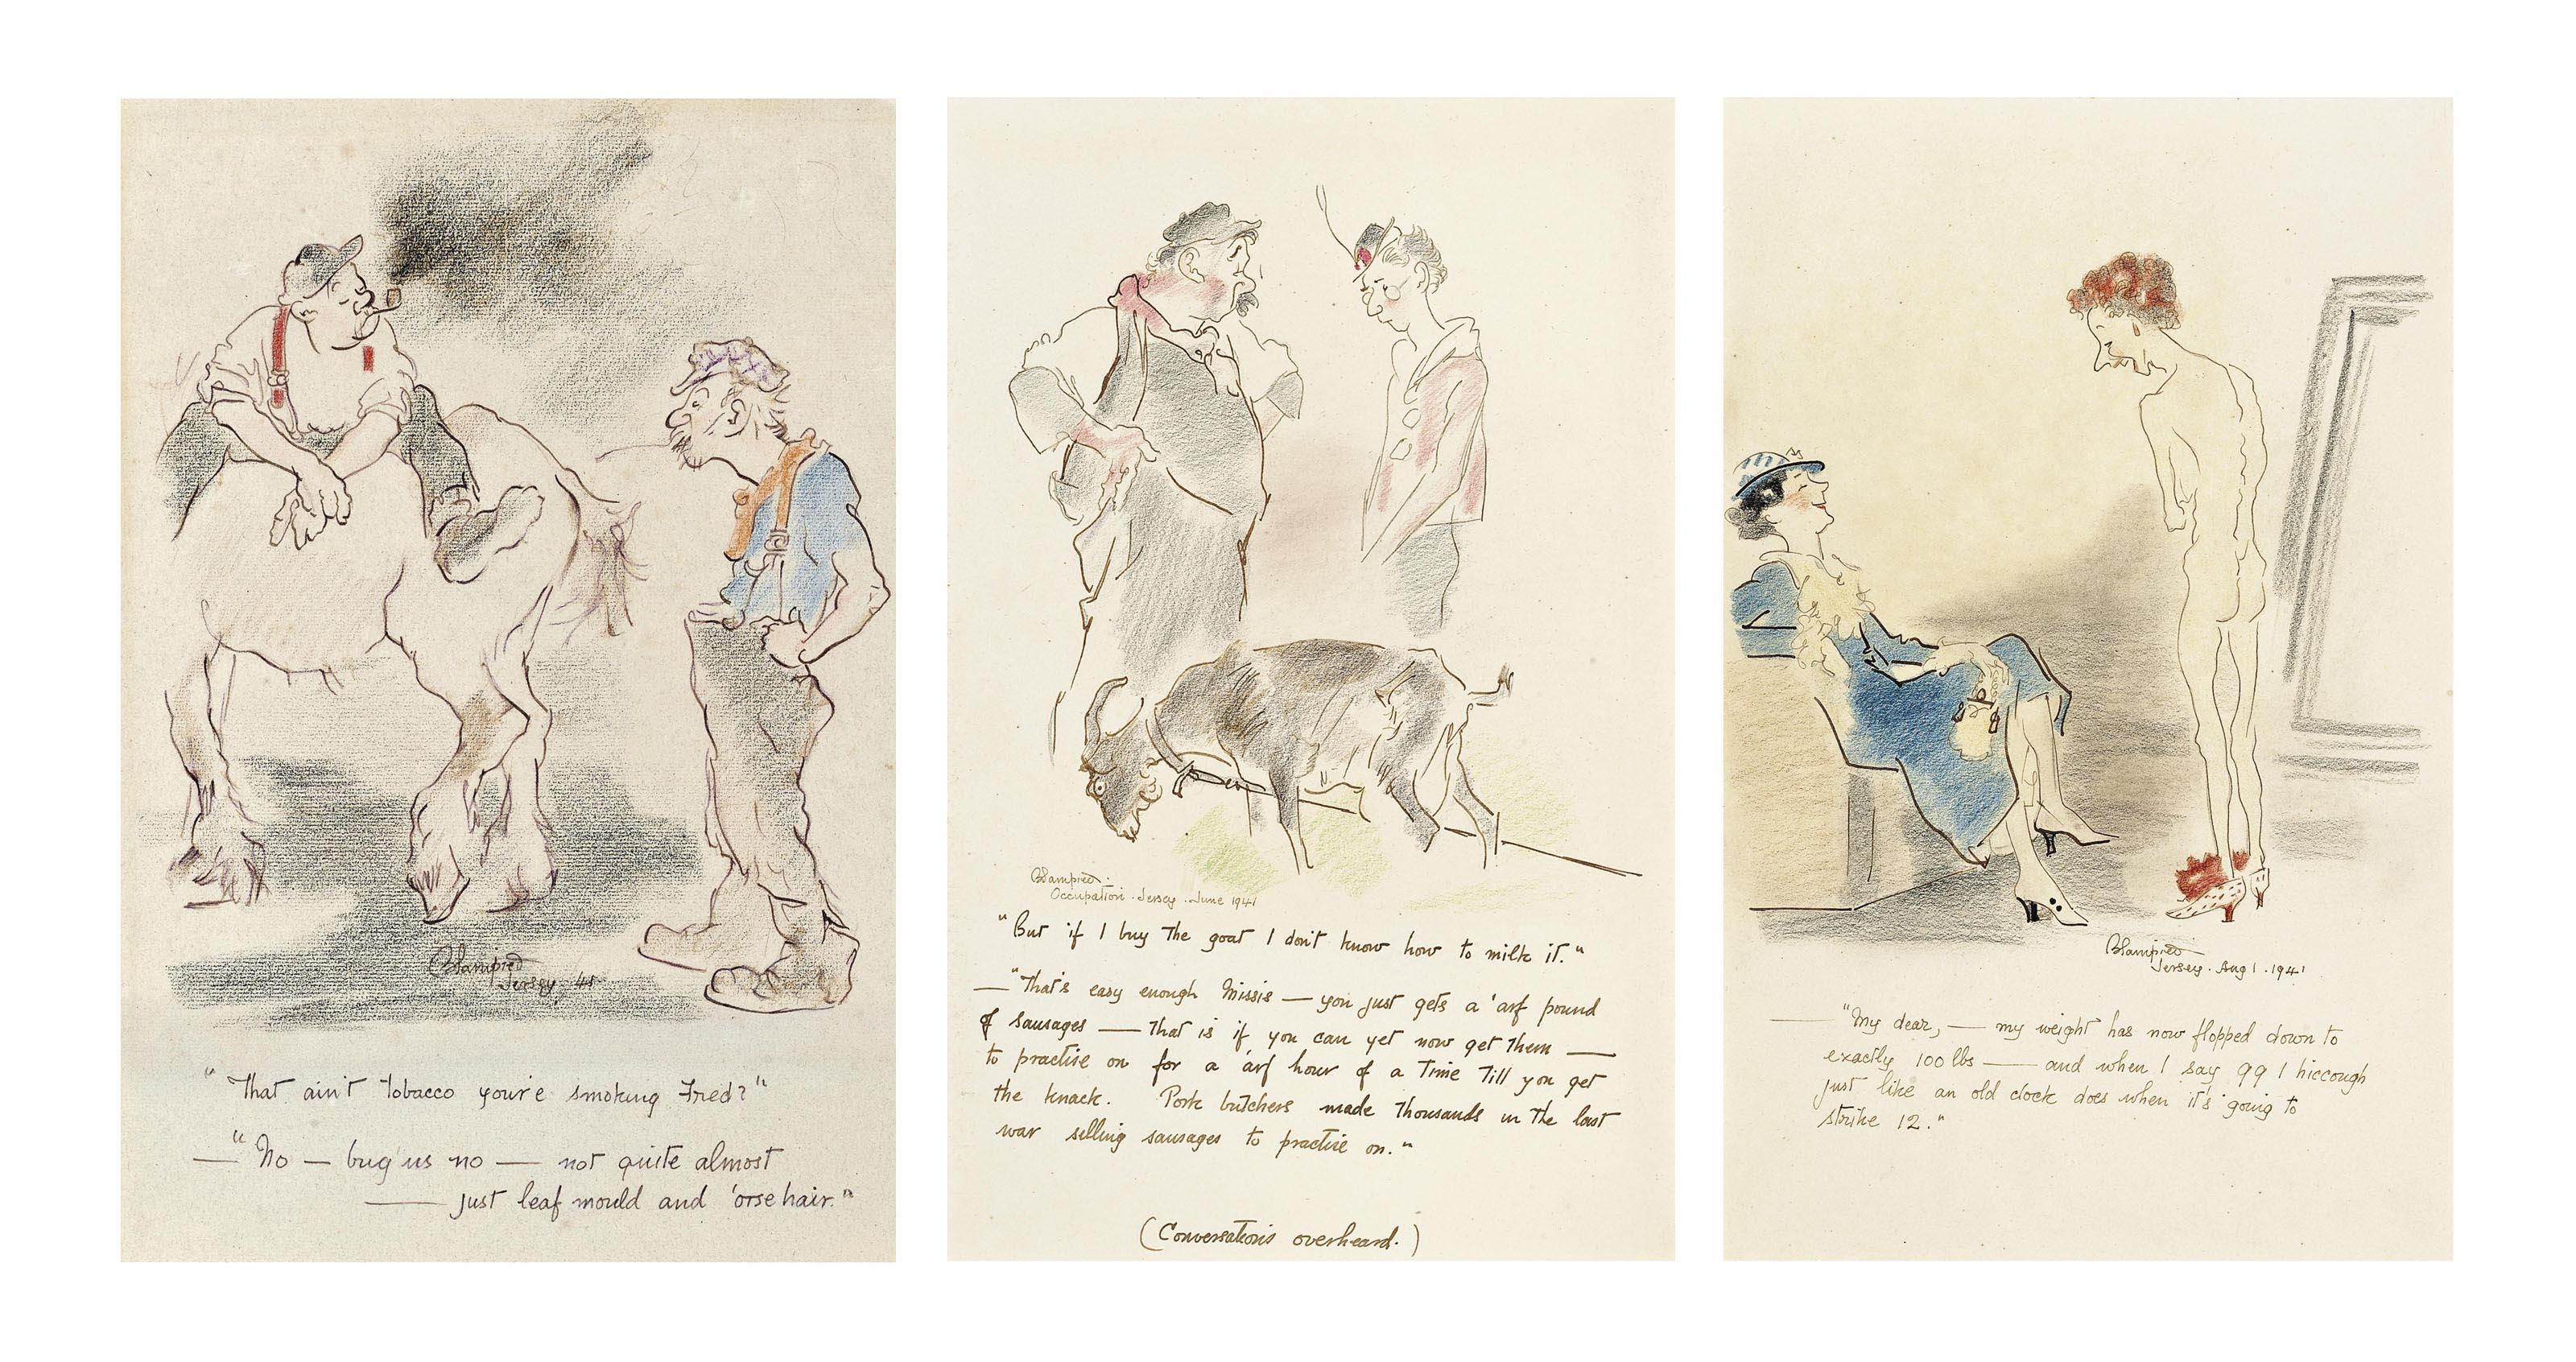 Blampied
Jersey 41
"That ain't tobacco your'e smoking Fred?"
— "No — bug'us no — not quite almost
— just leaf mould and 'orse hair."
Blampied.
Occupation . Jersey . June 1941
"But if I buy the goat I don't know how to milk it."
— "That's easy enough Missis — you just gets a 'arf pound
of sausages — that is if you can yet now get them —
to practise on for a 'arf hour of a time till you get
the knack. Pork butchers made thousands in the last
war selling sausages to practise on."
(Conversations overheard.)
Blampied
Jersey . Aug 1 . 1941
— "My dear, — my weight has now flopped down to
exactly 100 lbs — and when I say 99 I hiccough
just like an old clock does when it's going to
strike 12."